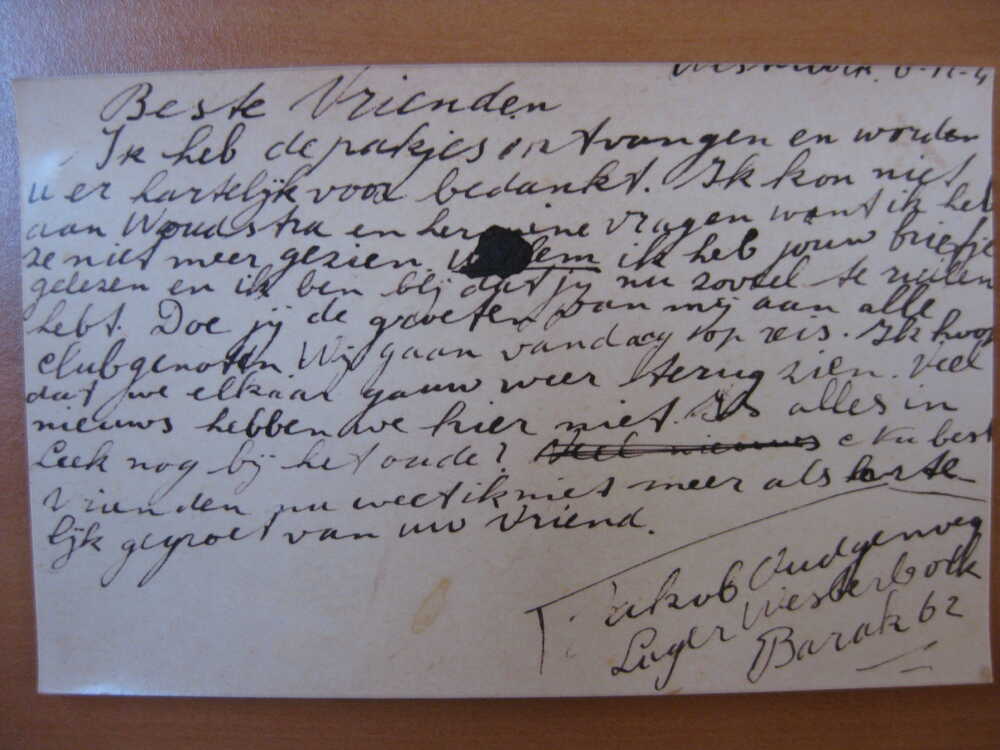 Westerbork. 6-11-4
Beste Vrienden
Ik heb de pakjes ontvangen en worden
u er hartelijk voor bedankt. Ik kon niet
aan Woudstra en hermine vragen want ik heb
ze niet meer gezien. Willem ik heb jouw briefje
gelezen en ik ben blij dat jij nu zooveel te ruilen
hebt. Doe jij de groeten van mij aan alle
clubgenoten. Wij gaan vandaag op reis. Ik hoop
dat we elkaar gauw weer terug zien. Veel
nieuws hebben we hier niet. Is alles in
Leek nog bij het oude? Veel nieuws Nu beste
Vrienden nu weet ik niet meer als harte-
lijk gegroet van uw Vriend.
Jakob Oudgenoeg
Lager Westerbork
Barak 62